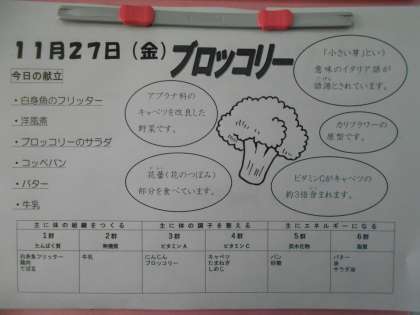 11月27日(金) ブロッコリー
今日の献立
・白身魚のフリッター
・洋風煮
・ブロッコリーのサラダ
・コッペパン
・バター
・牛乳
アブラナ科の
キャベツを改良した
野菜です。
「小さい芽」という
意味のイタリア語が
語源とされています。
カリフラワーの
原型です。
花蕾(花のつぼみ)
部分を食べています。
ビタミンCがキャベツの
約3倍含まれます。
主に体の組織をつくる 主に体の調子を整える 主にエネルギーになる
1群 2群 3群 4群 5群 6群
たんぱく質 無機質 ビタミンA ビタミンC 炭水化物 脂質
白身魚フリッター 牛乳 にんじん キャベツ パン バター
鶏肉 ブロッコリー たまねぎ 砂糖 油
しめじ サラダ油